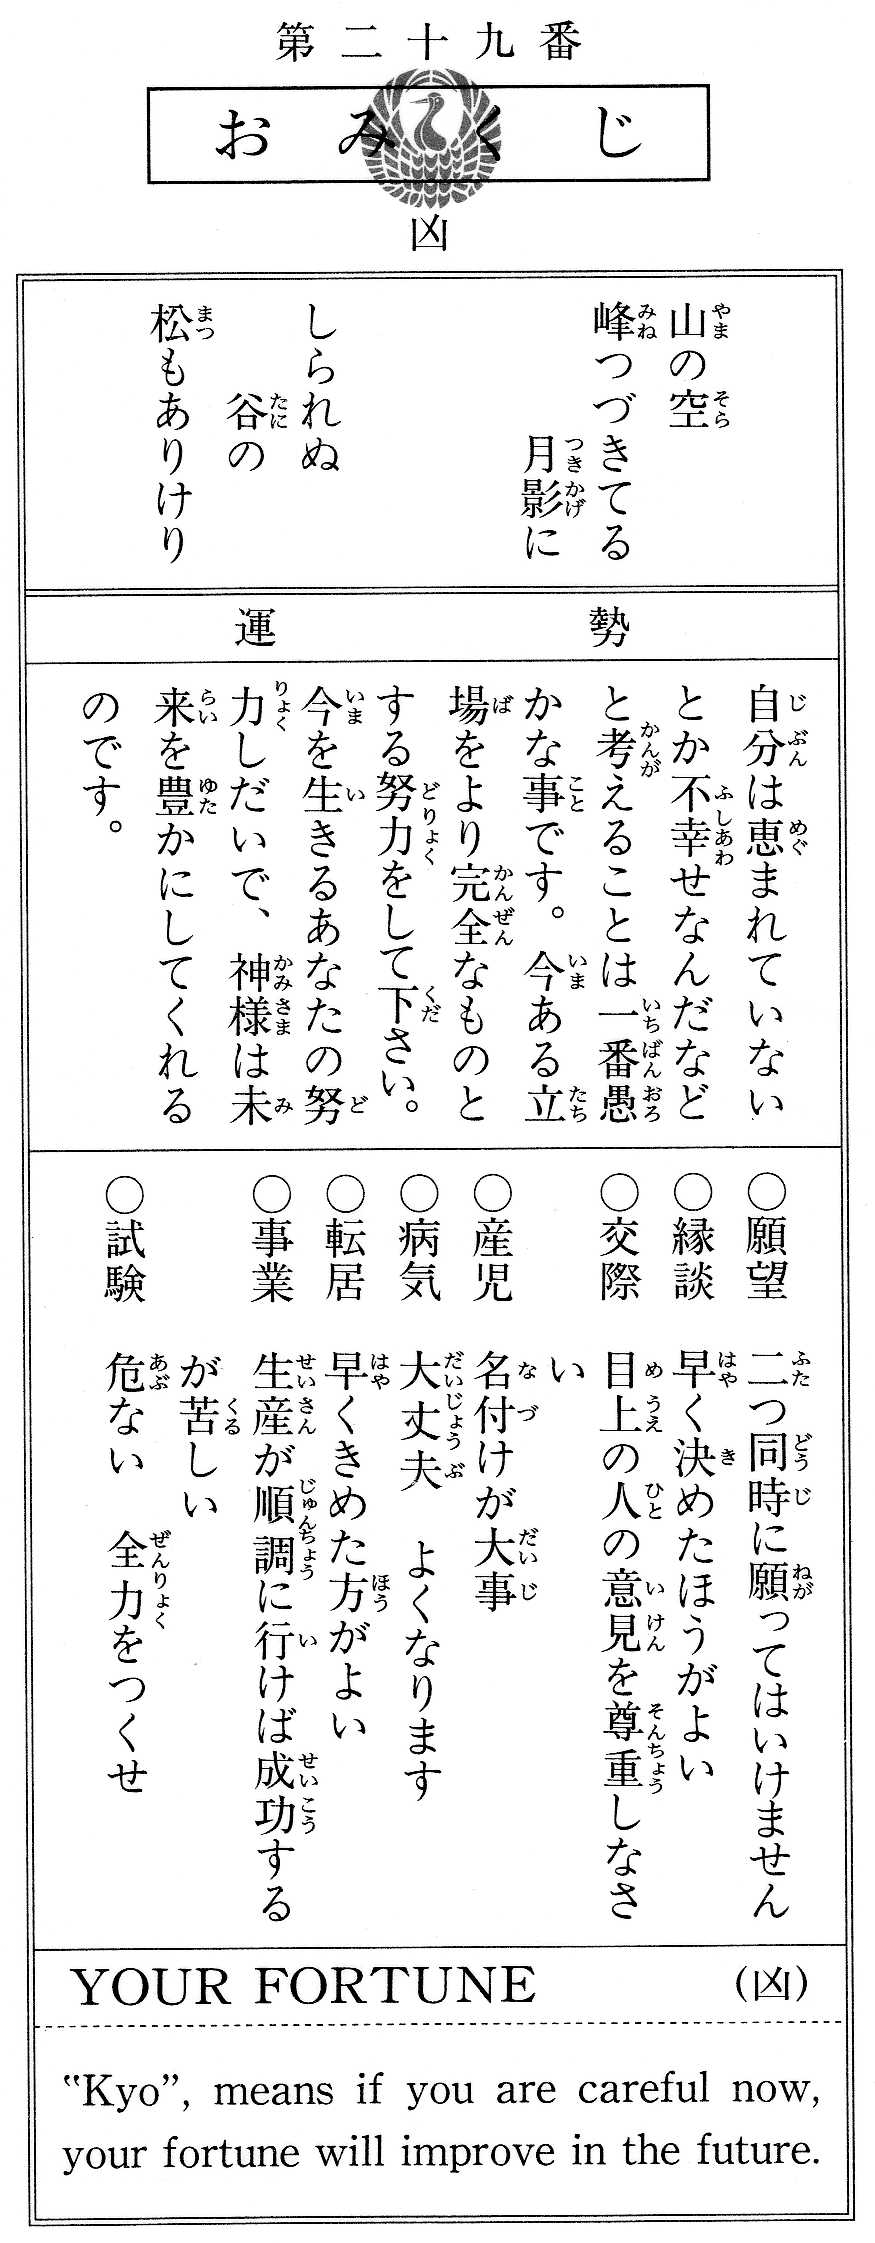 第二十九番
おみくじ
凶
山の空
峰つづきてる
月影に
しられぬ
谷の
松もありけり
運勢
自分は恵まれていない
とか不幸せなんだなど
と考えることは一番愚
かな事です。今ある立
場をより完全なものと
する努力をして下さい。
今を生きるあなたの努
力しだいで、神様は未
来を豊かにしてくれる
のです。
○願望 二つ同時に願ってはいけません
○縁談 早く決めたほうがよい
○交際 目上の人の意見を尊重しなさ
い
○産児 名付けが大事
○病気 大丈夫 よくなります
○転居 早くきめた方がよい
○事業 生産が順調に行けば成功する
が苦しい
○試験 危ない 全力をつくせ
YOUR FORTUNE (凶)
"Kyo", means if you are careful now,
your fortune will improve in the future.